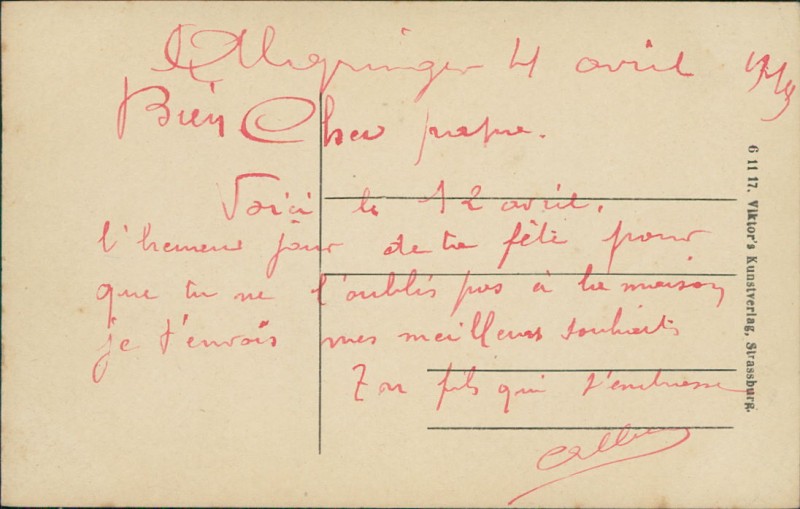 4 avril
Bien Cher papa.
Voici le 12 avril.
l'heureux jour de ta fête pour
que tu ne l'oublis pas à la maison
je t'envois mes meilleurs souhaits
Ton fils qui t'embrasse
6 11 17. Viktor's Kunstverlag, Strassburg.